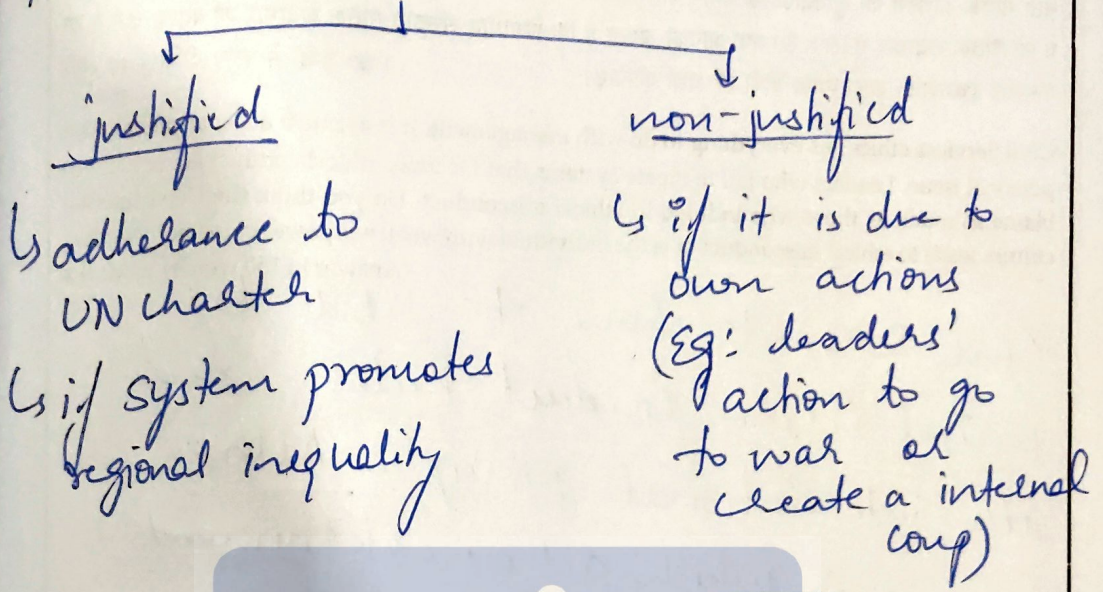 justified
↳ adherance to
UN Charter
↳ if system promotes
regional inequality
non-justified
↳ if it is due to
own actions
(Eg: leaders'
action to go
to war or
create a internal
coup)